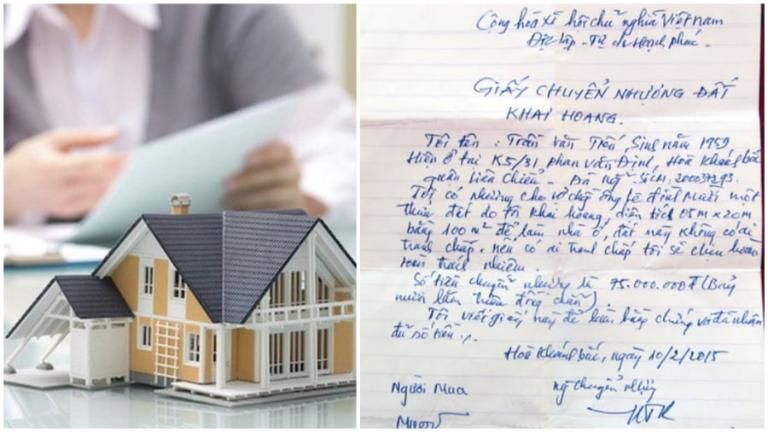 Cộng hòa xã hội chủ nghĩa Việt Nam
Độc lập - Tự do Hạnh phúc.
GIẤY CHUYỂN NHƯỢNG ĐẤT
KHAI HOANG.
Tôi tên : Trần Văn Tiến, Sinh năm 1959
Hiện ở tại K5/31, Phan Văn Định, Hoà Khánh bắc
quận Liên Chiểu - Đà nẵng. Số CM. 200037293.
Tôi có nhường cho vợ chồng ông Lê Đình Mười một
thửa đất do tôi khai hoang, diện tích 05m x 20m
bằng 100m² để làm nhà ở đất này không có ai
tranh chấp, nếu có ai tranh chấp tôi sẽ chịu hoàn
toàn trách nhiệm.
Số tiền chuyển nhượng là 75.000.000đ (Bảy
mươi lăm triệu đồng chẵn).
Tôi viết giấy này để làm bằng chứng và đã nhận
đủ số tiền.
Hoà Khánh bắc, ngày 10/2/2015
Người Mua
Ng chuyển nhượng